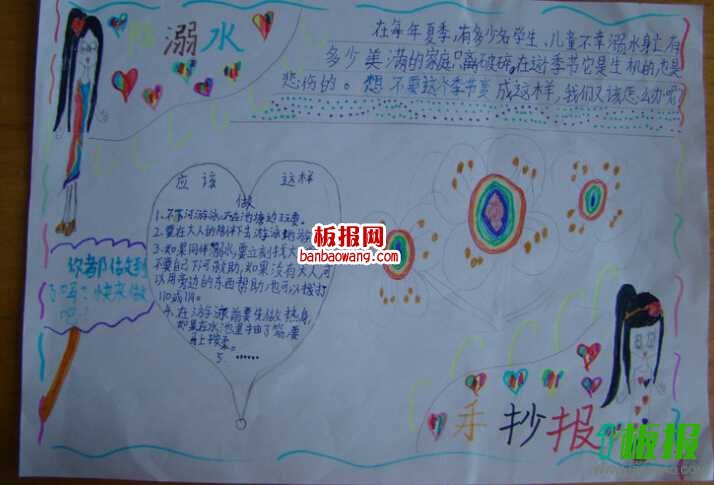 溺水
在每年夏季,有多少名学生、儿童不幸溺水身亡有
多少美满的家庭只离破碎。在这季节它是生机的也是
悲伤的。想不要这个季节变成这样,我们又该怎么办呢
应该 这样
做
1、不下河游泳,不在池塘边玩耍。
2、要在大人的陪伴下去游泳
3、如果同伴溺水,要立刻找大
要自己下河救助,如果没有大人,可
以用旁边的东西帮助,也可以拨打
110或119。
4、在游泳前要先做热身,
如果在水池里抽了筋,要
马上按摩。
5、……
你都做到
了吗?快来做
吧!
板报网
banbaowang.com
手抄报
板报